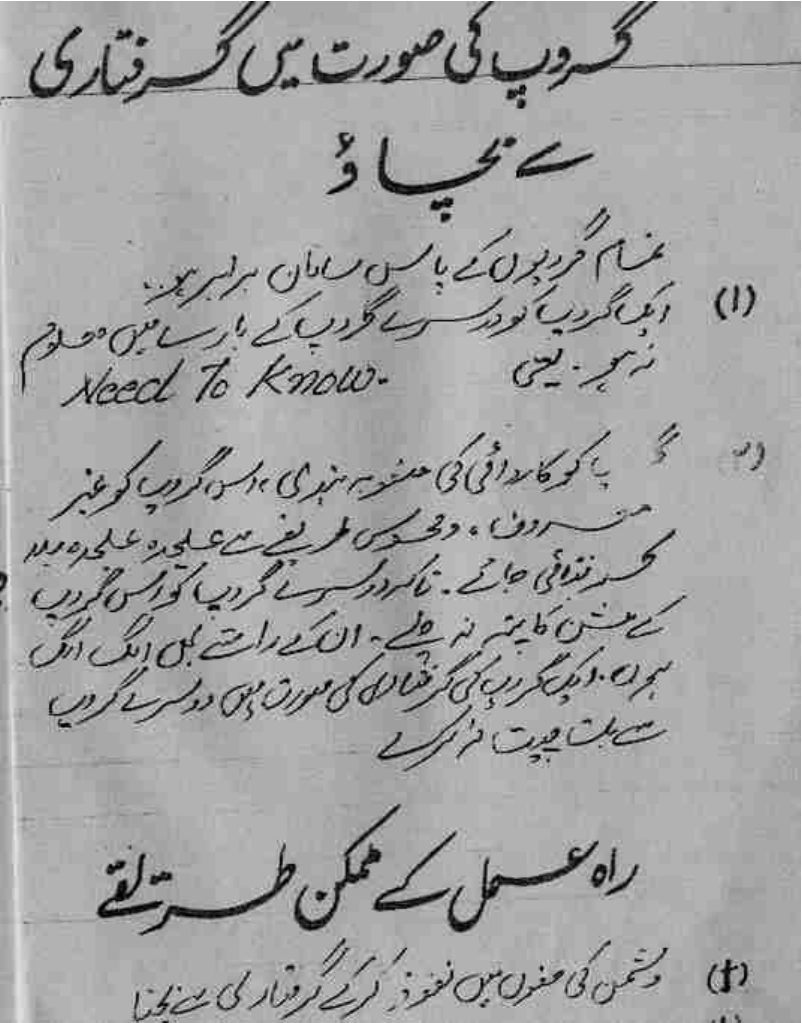 گروپ کی صورت میں گرفتاری
سے بچاؤ
تمام گروپوں کے پاس سامان برابر ہو۔
(۱) ایک گروپ کو دوسرے گروپ کے بارے میں معلوم
نہ ہو۔ یعنی Need To Know.
(۲) کو کاروائی کی منصوبہ بندی، اس گروپ کو غیر
طریقے سے علیحدہ علیحدہ
بتائی جائے۔ تاکہ دوسرے گروپ کو اس گروپ
کے مشن کا پتہ نہ چلے۔ ان کے راستے بھی الگ الگ
ہوں۔ ایک گروپ کی گرفتاری کی صورت میں دوسرے گروپ
سے بات چیت نہ کرے
راہ عمل کے ممکن طریقے
(۱) دشمن کی صفوں میں نفوذ کرکے گرفتاری سے بچنا